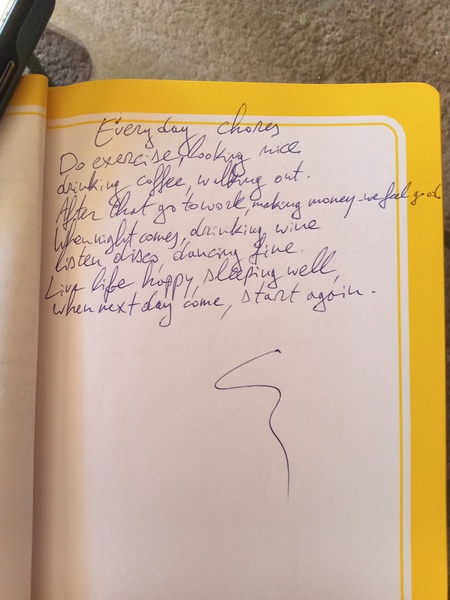 Everyday chores
Do exercise, looking nice
drinking coffee, walking out.
After that go to work, making money - we feel good.
When night comes, drinking wine
listen disco, dancing fine.
Live life happy, sleeping well,
when next day come, start again.